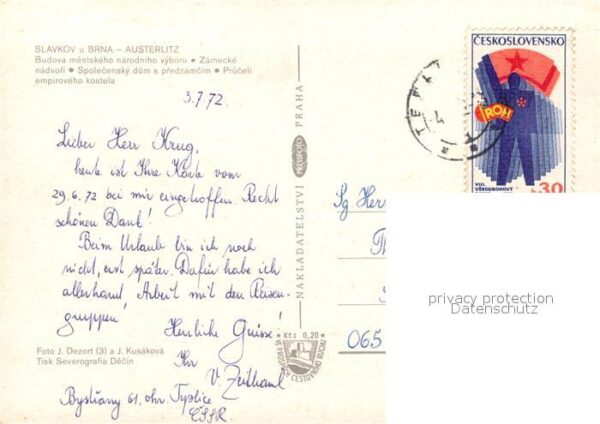 SLAVKOV u BRNA – AUSTERLITZ
Budova městského národního výboru • Zámecké
nádvoří • Společenský dům a předzámčím • Průčelí
empírového kostela
3.7.72
Lieber Herr Krug,
heute ist Ihre Karte vom
29.6.72 bei mir eingetroffen. Recht
schönen Dank!
Beim Urlaub bin ich noch
nicht, erst später. Dafür habe ich
allerhand Arbeit mit den Reisen-
gruppen!
Herzliche Grüsse!
Ihr
V.
Bystřany 61, ohr Teplice
ČSSR.
Foto J. Dezort (3) a J. Kusáková
Tisk Severografia Děčín
NAKLADATELSTVÍ PRESSFOTO PRAHA
Kčs 0,20
ČESKOSLOVENSKO
ROH
VIII.
VŠEODBOROVÝ
30
Sg Her
065
privacy protection
Datenschutz